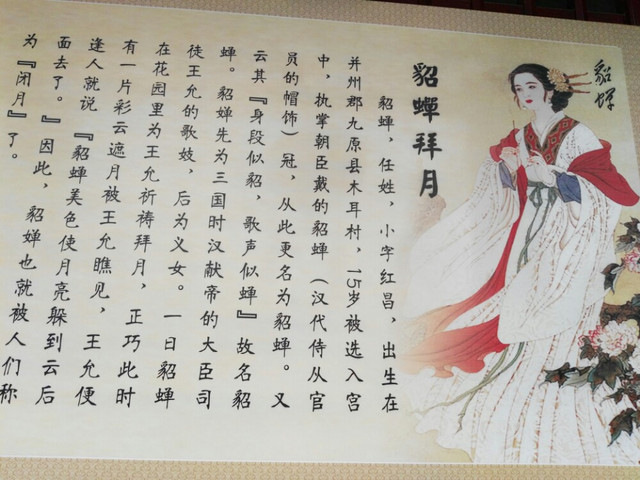 貂蝉
貂蝉拜月
貂蝉，任姓，小字红昌，出生在
并州郡九原县木耳村，15岁被选入宫
中，执掌朝臣戴的貂蝉（汉代侍从官
员的帽饰）冠，从此更名为貂蝉。又
云其『身段似貂，歌声似蝉』故名貂
蝉。貂蝉先为三国时汉献帝的大臣司
徒王允的歌妓，后为义女。一日貂蝉
在花园里为王允祈祷拜月，正巧此时
有一片彩云遮月被王允瞧见，王允便
逢人就说『貂蝉美色使月亮躲到云后
面去了。』因此，貂婵也就被人们称
为『闭月』了。